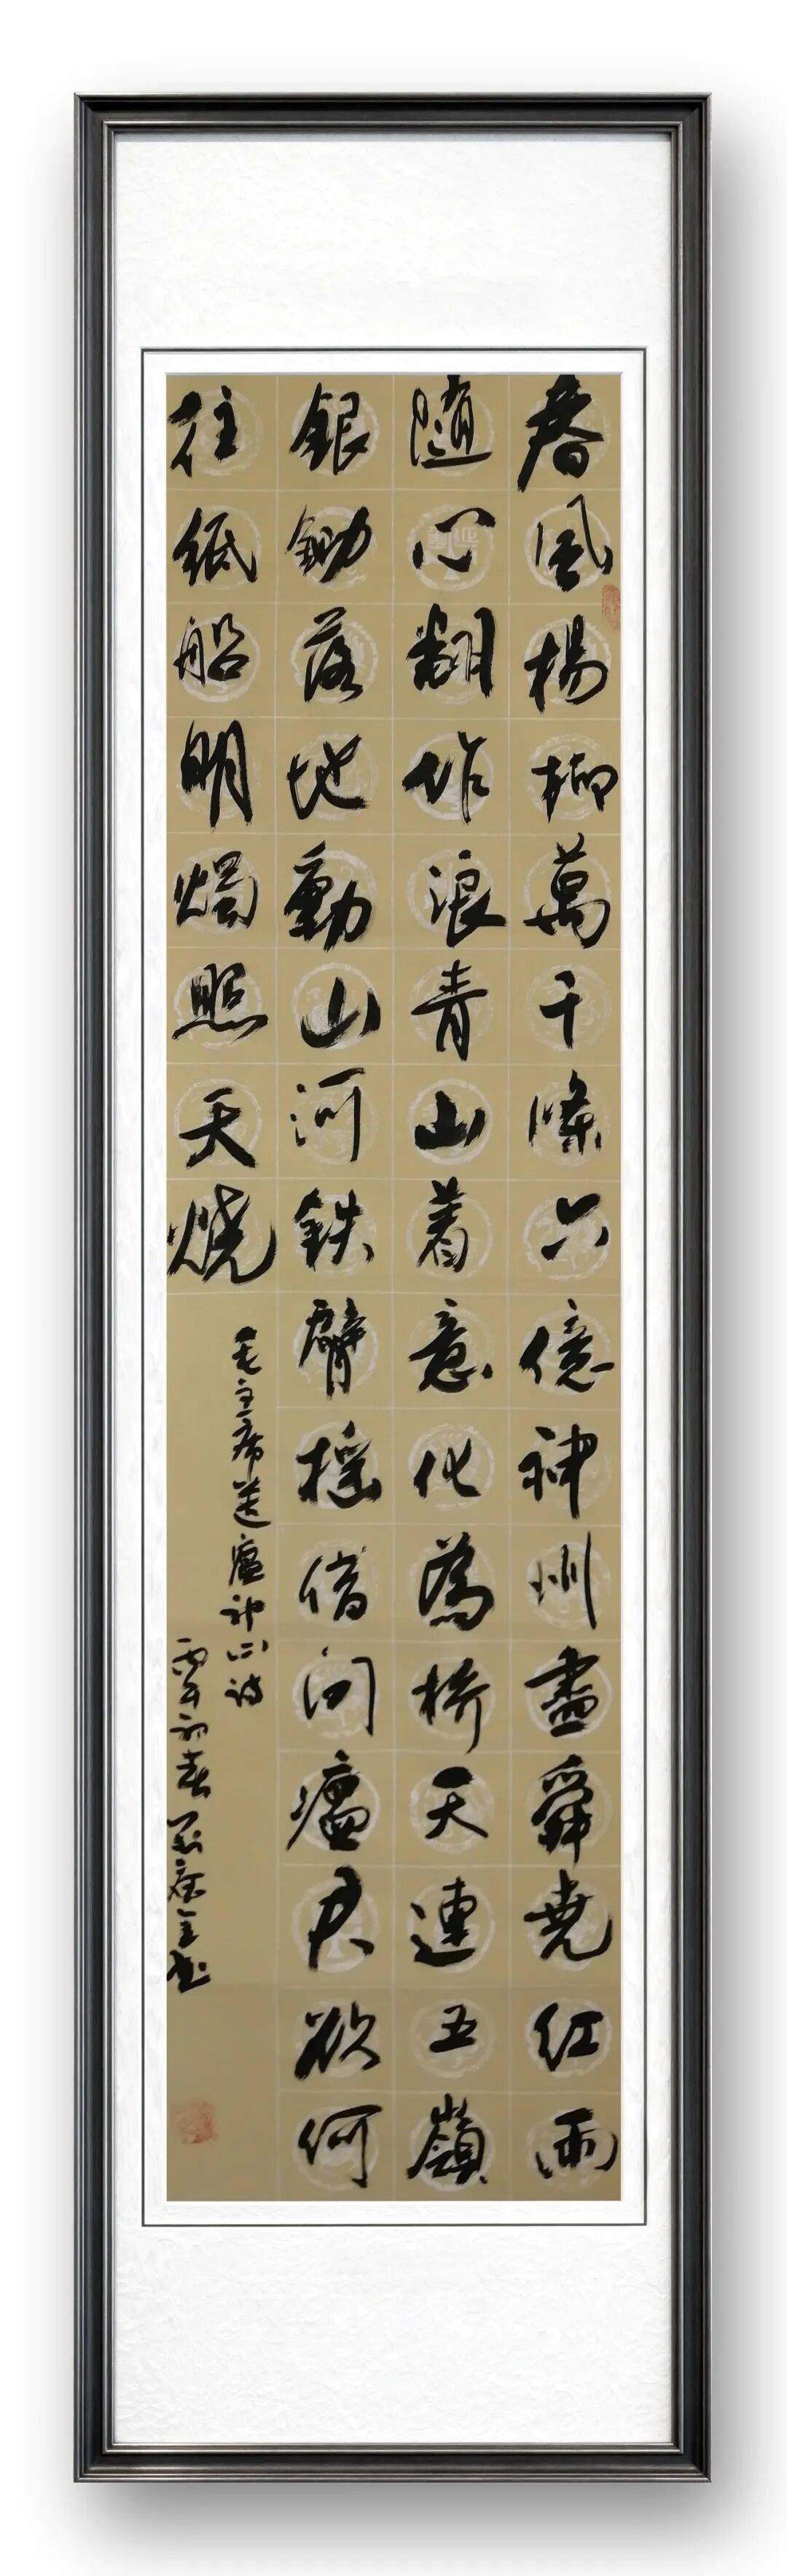 春風楊柳萬千條六億神州盡舜堯紅雨
隨心翻作浪青山着意化為橋天連五嶺
銀鋤落地動山河鉄臂摇借问瘟君欲何
往紙船明燭照天燒
毛主席送瘟神二詩
丙午初春